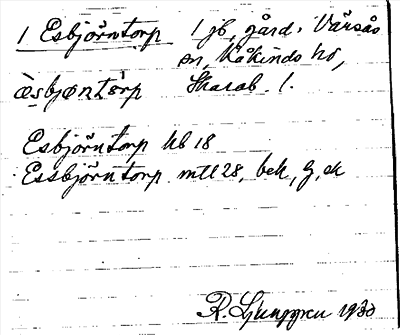 1 Esbjörntorp 1 jb, gård, Värsås
sn, Kåkinds hd,
æsbjøntòrp Skarab. l.
Esbjörntorp hb 18
Essbjörntorp mtl 28, bek, G, ek
R. Ljunggren 1930